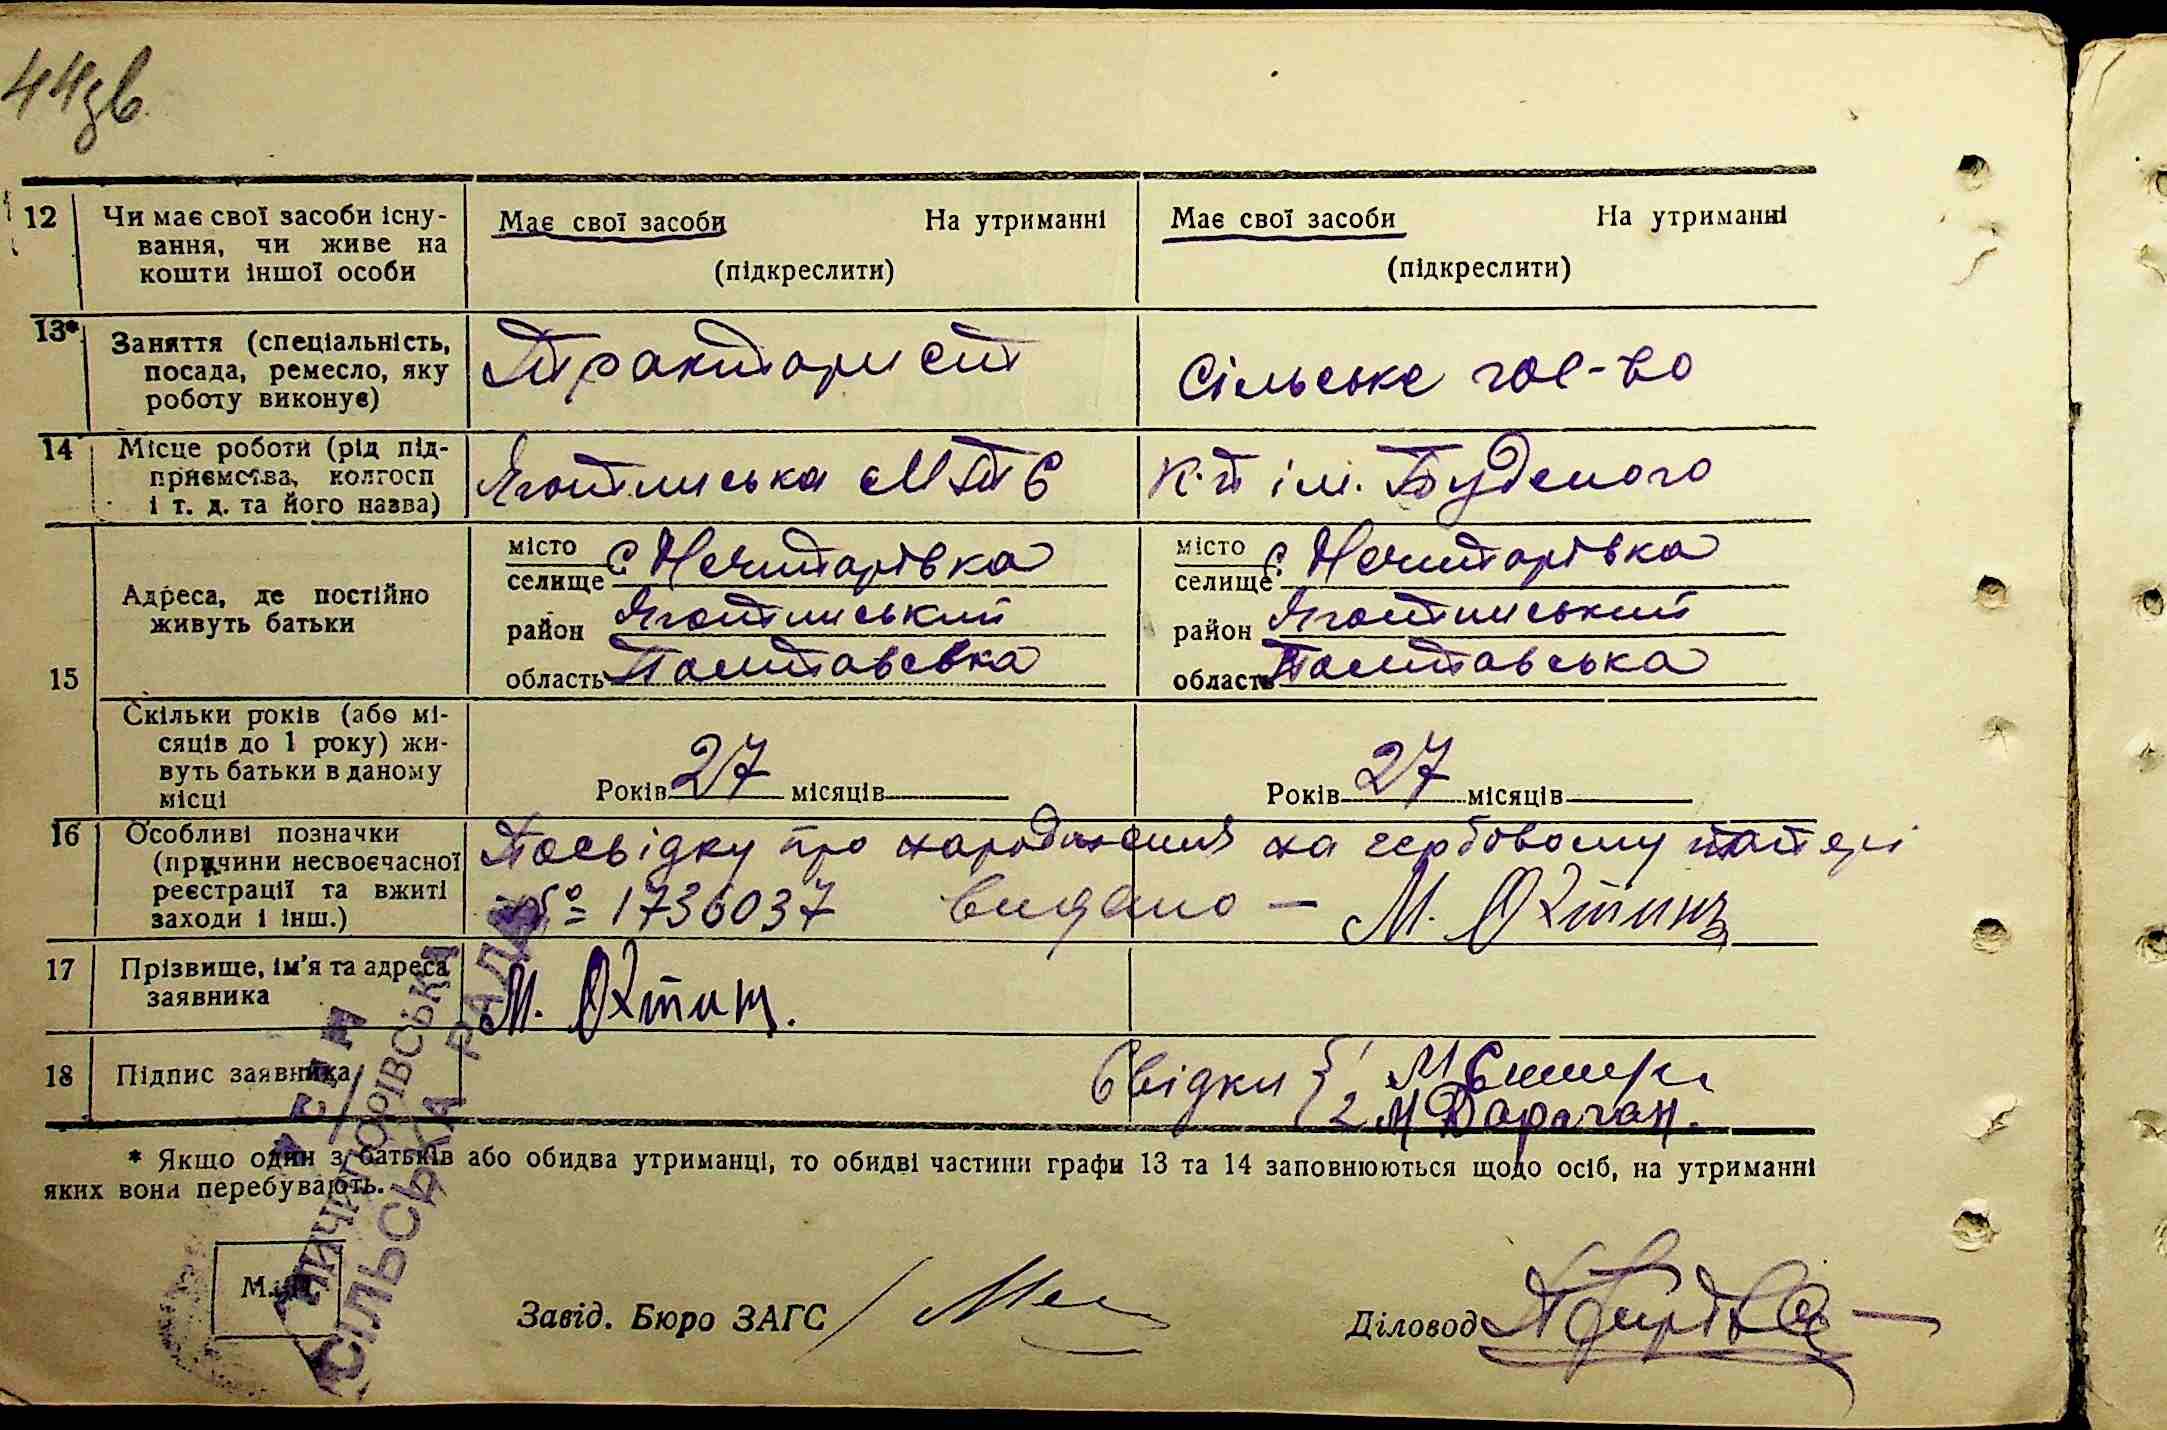 44зв.
12 Чи має свої засоби існу-
вання, чи живе на
кошти іншої особи
Має свої засоби На утриманні
(підкреслити)
Має свої засоби На утриманні
(підкреслити)
13* Заняття (спеціальність,
посада, ремесло, яку
роботу виконує)
Тракторист
Сільське гос-во
14 Місце роботи (рід під-
приємства, колгосп
і т. д. та його назва)
Яготинська МТС
К-п ім. Будьоного
15 Адреса, де постійно
живуть батьки
місто
селище с. Нечипорівка
район Яготинський
область Полтавська
місто
селище с. Нечипорівка
район Яготинський
область Полтавська
Скільки років (або мі-
сяців до 1 року) жи-
вуть батьки в даному
місці
Років 27 місяців
Років 27 місяців
16 Особливі позначки
(причини несвоєчасної
реєстрації та вжиті
заходи і інш.)
Посвідку про народження на гербовому папері
№ 1736037 видано — М. Охтинь
17 Прізвище, ім'я та адреса
заявника
М. Охтинь.
18 Підпис заявника
Свідки 1 М
2 М Дараган.
* Якщо один з батьків або обидва утриманці, то обидві частини графи 13 та 14 заповнюються щодо осіб, на утриманні
яких вони перебувають.
СІЛЬСЬКА РАДА
М. П.
Завід. Бюро ЗАГС
Діловод